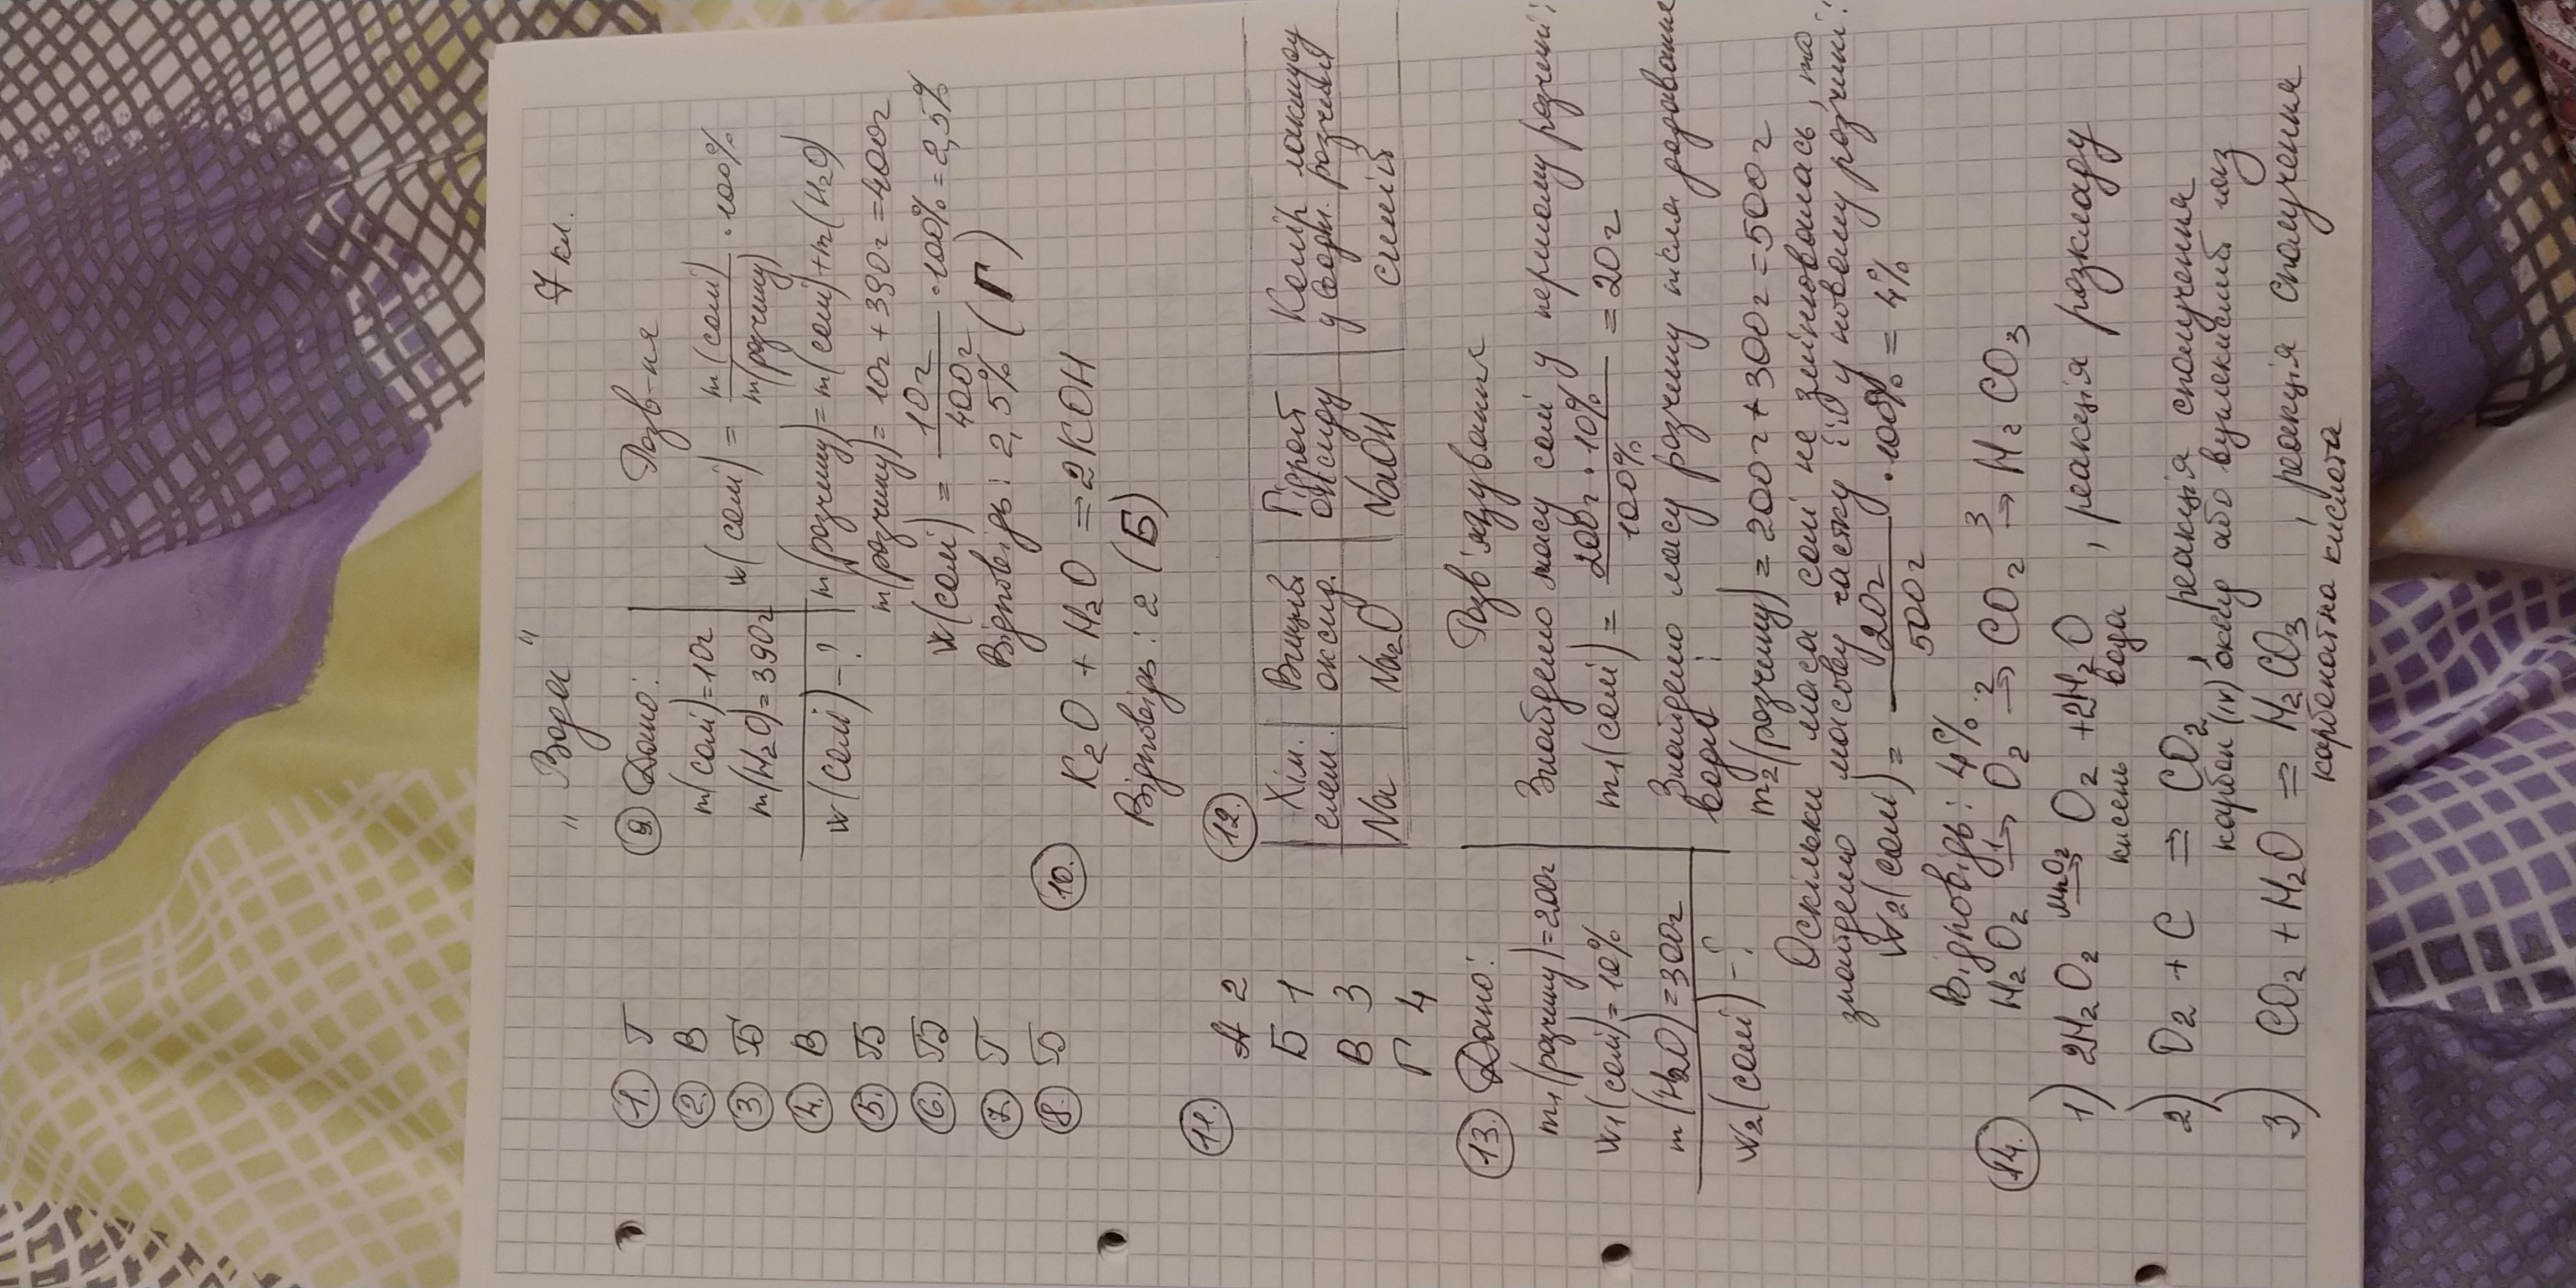 "Вода" 7 кл.
1. Г
2. В
3. Б
4. В
5. Б
6. Б
7. Г
8. Б
9. Дано: Розв-ня
m(солі)=10г
m(H₂O)=390г
w(солі)-?
w(солі) = m(солі)/m(розчину) · 100%
m(розчину)=m(солі)+m(H₂O)
m(розчину)= 10г+390г=400г
w(солі) = 10г/400г · 100% = 2,5%
Відповідь: 2,5% (Г)
10. K₂O + H₂O = 2KOH
Відповідь: 2 (Б)
11. А 2
Б 1
В 3
Г 4
12. Хім. елем. | Вищий оксид | Гідроген оксиду | Колір лакмусу у водн. розчині
Na | Na₂O | NaOH | синій
13. Дано: Розв'язування
m₁(розчину)=200г
w₁(солі)=10%
m(H₂O)=300г
w₂(солі)-?
Знайдемо масу солі у першому розчині:
m₁(солі) = 200г · 10%/100% = 20г
Знайдемо масу розчину після додавання
води:
m₂(розчину) = 200г + 300г = 500г
Оскільки маса солі не змінювалась, то
знайдемо масову частку її у новому розчині:
w₂(солі) = 20г/500г · 100% = 4%
Відповідь: 4%.
14. H₂O₂ →1 O₂ →2 CO₂ →3 H₂CO₃
1) 2H₂O₂ MnO₂→ O₂ + 2H₂O , реакція розкладу
кисень вода
2) O₂ + C = CO₂, реакція сполучення
карбон (IV) оксид або вуглекислий газ
3) CO₂ + H₂O = H₂CO₃ , реакція сполучення
карбонатна кислота